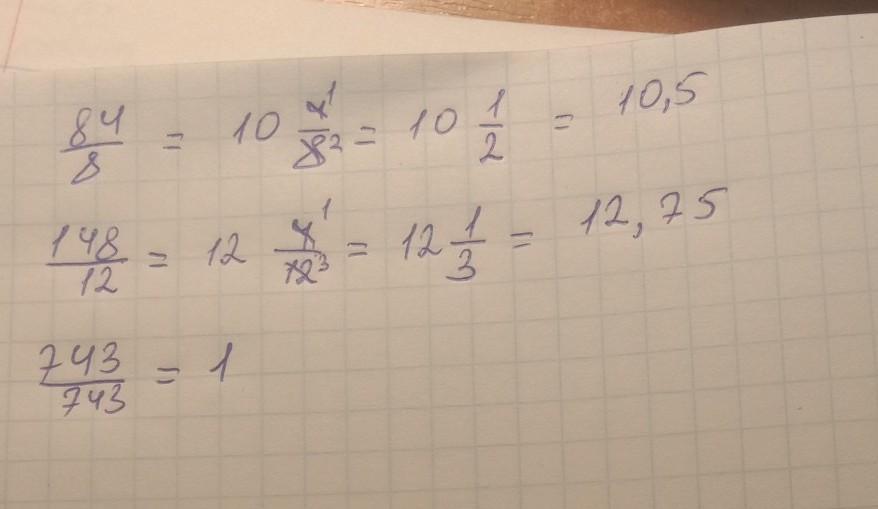 84/8 = 10 4¹/8² = 10 1/2 = 10,5
148/12 = 12 4¹/12³ = 12 1/3 = 12,75
743/743 = 1